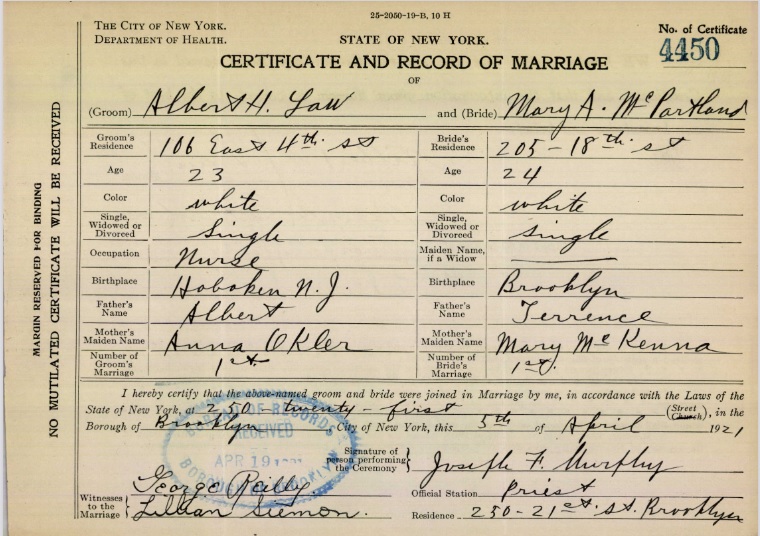 25-2050-19-B, 10 H
THE CITY OF NEW YORK.
DEPARTMENT OF HEALTH.
STATE OF NEW YORK.
No. of Certificate
4450
CERTIFICATE AND RECORD OF MARRIAGE
OF
(Groom) Albert H. Law and (Bride) Mary A. McPartland
Groom's Residence 106 East 4th st Bride's Residence 205-18th st
Age 23 Age 24
Color white Color white
Single, Widowed or Divorced Single Single, Widowed or Divorced single
Occupation Nurse Maiden Name, if a Widow
Birthplace Hoboken N.J. Birthplace Brooklyn
Father's Name Albert Father's Name Terrence
Mother's Maiden Name Anna Okler Mother's Maiden Name Mary McKenna
Number of Groom's Marriage 1st Number of Bride's Marriage 1st
I hereby certify that the above-named groom and bride were joined in Marriage by me, in accordance with the Laws of the
State of New York, at 250 twenty-first (Street Church), in the
Borough of Brooklyn City of New York, this 5th of April 1921
OF RECORDS
RECEIVED
APR 19
BOROUGH BROOKLYN
Signature of person performing the Ceremony Joseph F. Murphy
Witnesses to the Marriage George Reilly
Lillian Siemon.
Official Station Priest
Residence 250-21st. St. Brooklyn
MARGIN RESERVED FOR BINDING
NO MUTILATED CERTIFICATE WILL BE RECEIVED